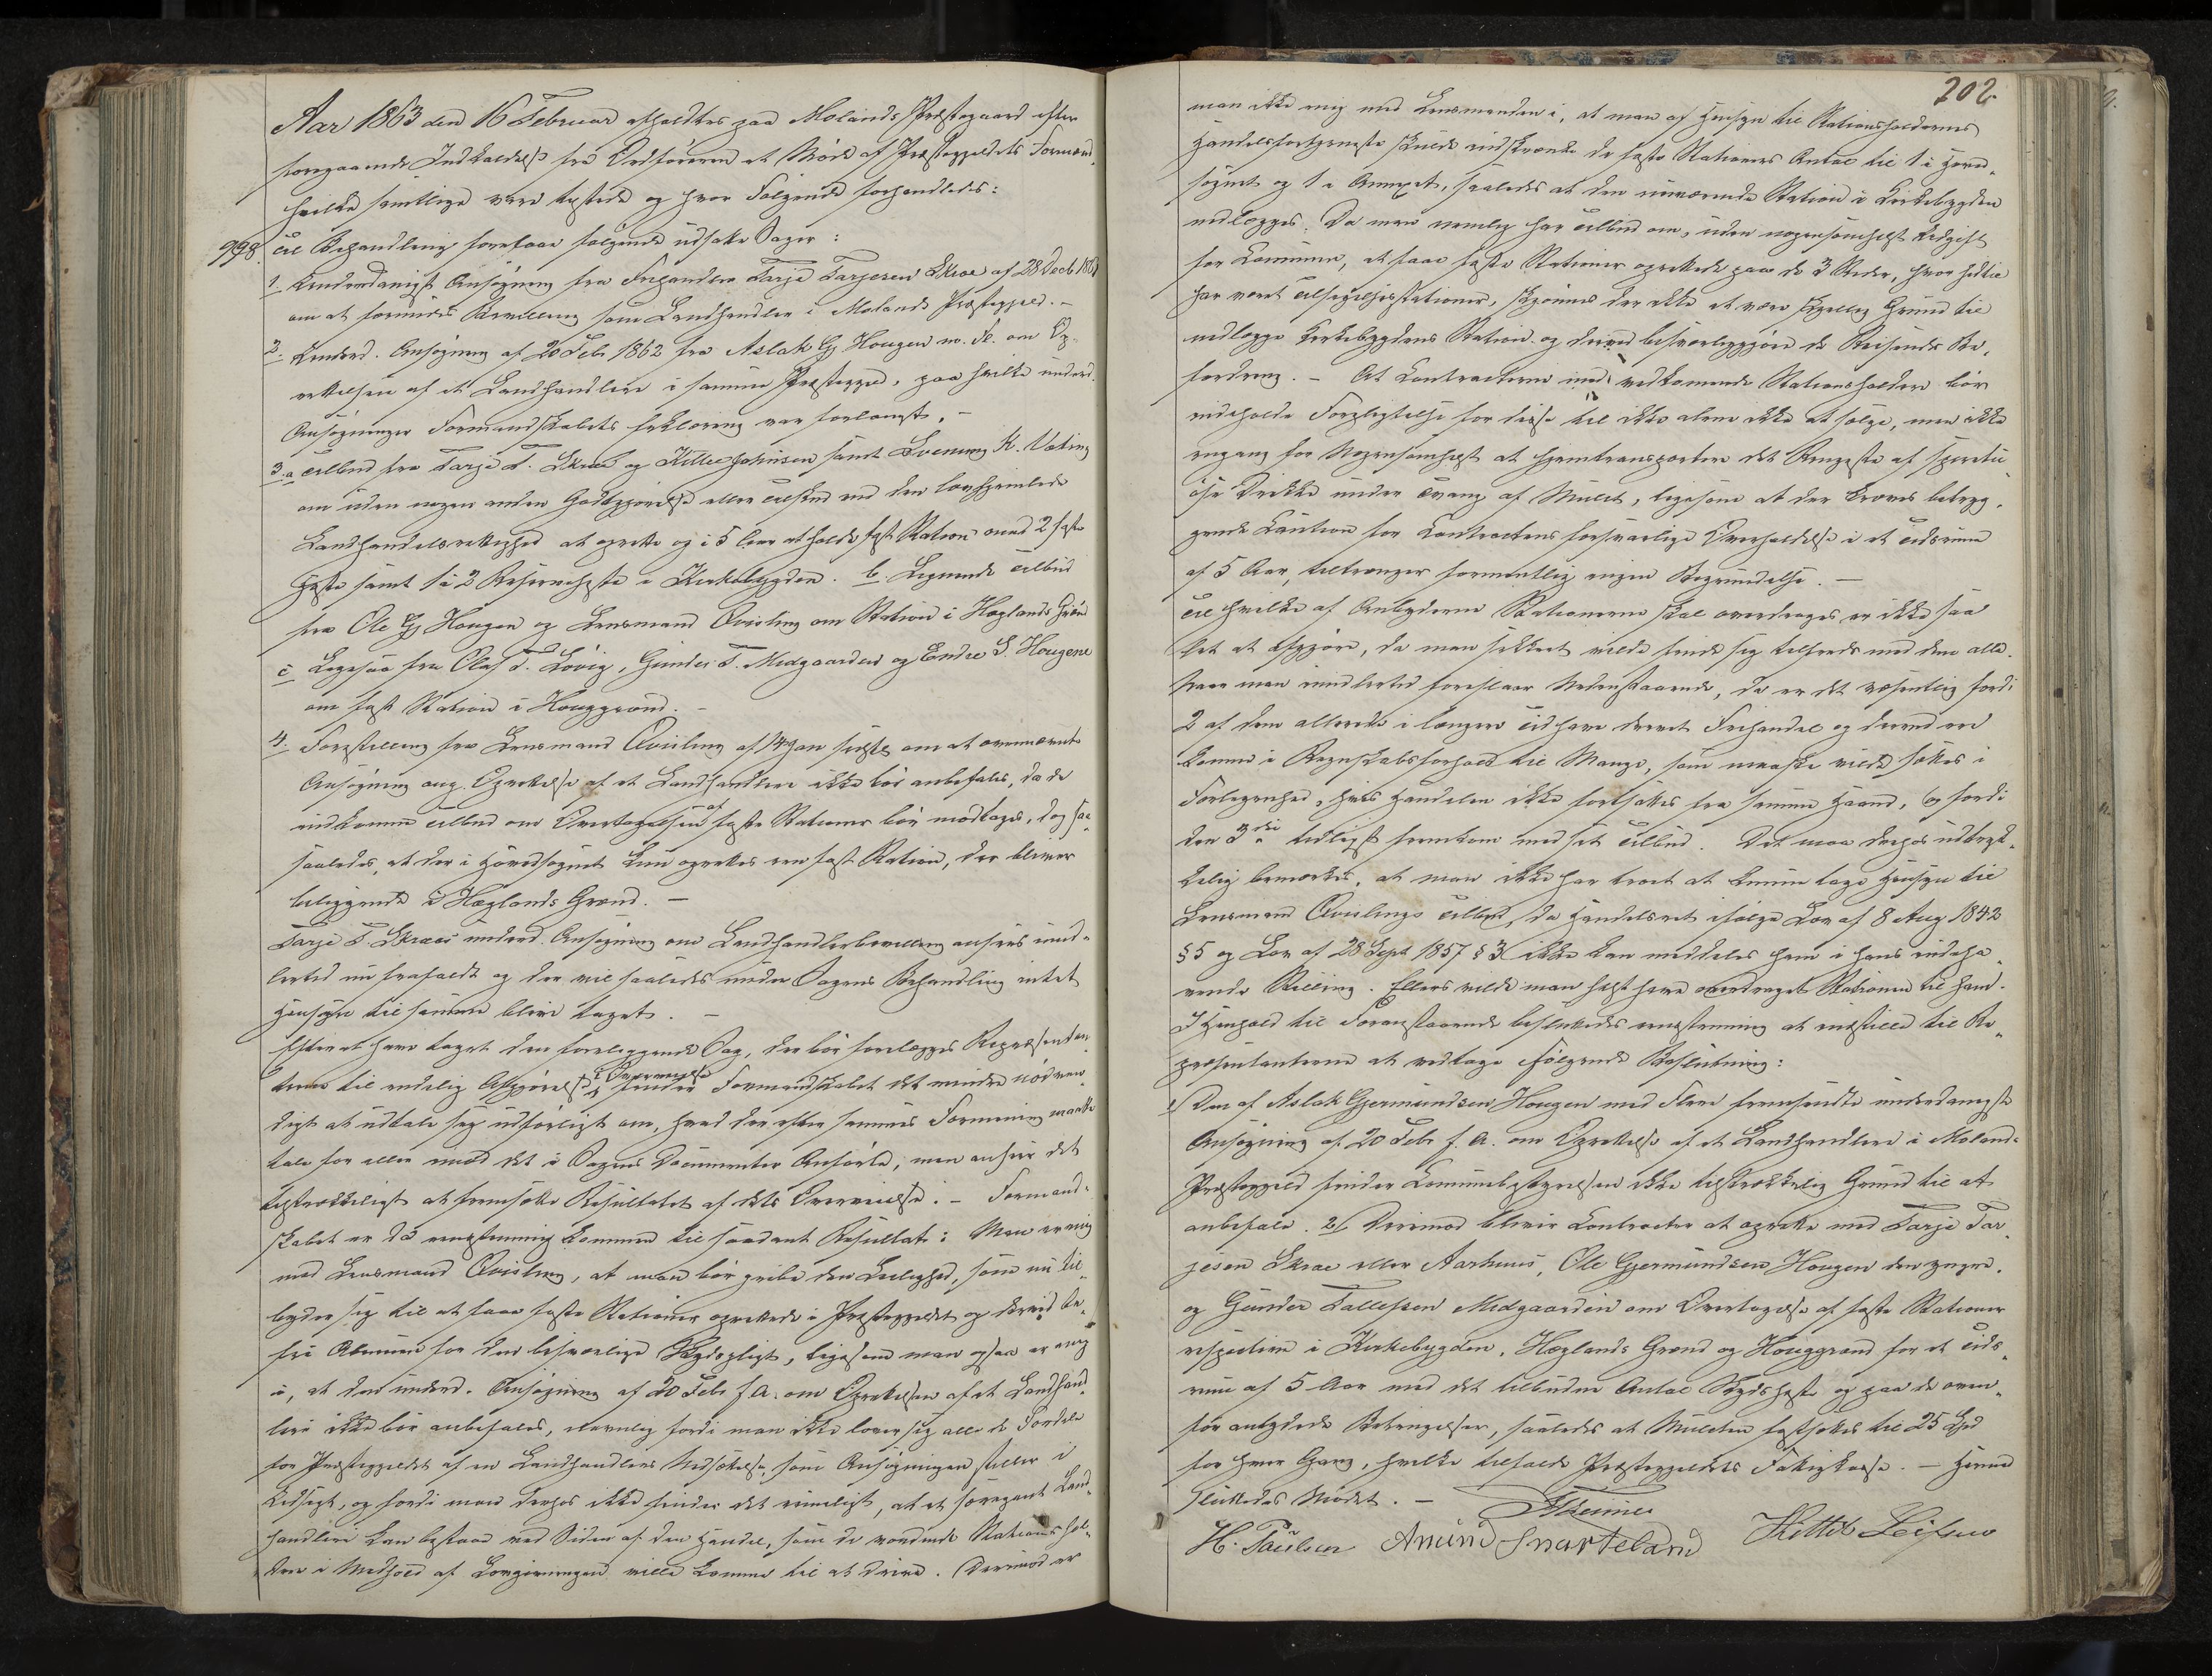 Aar 1863 den 16 Februar afholdtes paa Molands Præstegaard efter
foregaaende Indkaldelse fra Ordføreren et Møde af Præstegjeldets Formænd,
hvilke samtlige vare tilstede og hvor Følgende forhandledes:
998. Til Behandling foretages følgende udsatte Sager:
1. Underdanigst Ansøgning fra Frihandler Tarje Tarjesen Skree af 28 Decb 1861
om at forundes Bevilling som Landhandler i Molands Præstegjeld. —
2. Underd. Ansøgning af 20 Febr 1862 fra Aslak Gj Hougen m. Fl. om Op-
rettelsen af et Landhandleri i samme Præstegjeld, paa hvilke underd.
Ansøgninger Formandskabets Erklæring var forlangt. —
3. a Tilbud fra Tarje T. Skree og Kittil Johnsen samt Svenung K. Vating
om uden nogen anden Godtgjørelse eller Tilskud end den lovhjemlede
Landhandelsrettighed at oprette og i 5 Aar at holde fast Station med 2 faste
Heste samt 1 à 2 Reserveheste i Kirkebygden. b. Lignende Tilbud
fra Ole Gj Hougen og Lensmand Qvisling om Station i Høglands Grænd
c Ligesaa fra Olaf T. Løvig, Gunder T. Midgaarden og Endre S. Hougene
om fast Station i Houggrænd. —
4. Forestilling fra Lensmand Qvisling af 14 Jan sidstl. om at ovennævnte
Ansøgning ang. Oprettelse af et Landhandleri ikke bør anbefales, da de
indkomne Tilbud om Overtagelsen af faste Stationer bør modtages, dog saa
saaledes, at der i Hovedsognet kun oprettes een fast Station, der bliver
beliggende i Høglands Grænd. —
Tarje T. Skrees underd. Ansøgning om Landhandlerbevilling ansees imid-
lertid nu frafaldt og der vil saaledes under Sagens Behandling intet
Hensyn til samme blive taget. —
Efter at have taget den foreliggende Sag, der bør forelægges Repræsentan-
terne til endelig Afgjørelse, i Overveielse finder Formandskabet det mindre nødven-
digt at udtale sig udførligt om, hvad der efter sammes Formening maatte
tale for eller imod det i Sagens Documenter Anførte, men anseer det
tilstrækkeligt at fremsætte Resultatet af dets Overveielse. — Formand-
skabet er da eenstemmig kommen til saadant Resultat: Man er enig
med Lensmand Qvisling, at man bør gribe den Leilighed, som nu til-
byder sig til at faae faste Stationer oprettede i Præstegjeldet og derved be-
frie Almuen for den besværlige Skydspligt, ligesom man ogsaa er enig
i, at den underd. Ansøgning af 20 Febr f. A. om Oprettelsen af et Landhand-
leri ikke bør anbefales, navnlig fordi man ikke lover sig alle de Fordele
for Præstegjeldet af en Landhandlers Nedsættelse, som Ansøgningen stiller i
Udsigt, og fordi man derhos ikke finder det rimeligt, at et saadant Land-
handleri kan bestaa ved Siden af den Handel, som de vordende Stationshol-
dere i Medhold af Lovgivningen ville komme til at drive. Derimod er
202.
man ikke enig med Lensmanden i, at man af Hensyn til Stationsholdernes
Handelsfortjeneste skulde indskrænke de faste Stationers Antal til 1 i Hoved-
sognet og 1 i Annexet, saaledes at den nuværende Station i Kirkebygden
nedlægges. Da man nemlig har Tilbud om, uden nogensomhelst Udgift
for Kommunen, at faae faste Stationer oprettede paa de 3 Steder, hvor hidtil
har været Tilsigelsesstationer, skjønnes der ikke at være skjellig Grund til
nedlægge Kirkebygdens Station og derved besværliggjøre de Reisendes Be-
fordring. — At Contracterne med vedkommende Stationsholdere bør
indeholde Forpligtelse for disse til ikke alene ikke at sælge, men ikke
engang for Nogensomhelst at hjemtransportere det Ringeste af spiritu-
øse Drikke under Tvang af Mulct, ligesom at der kræves betryg-
gende Caution for Contractens forsvarlige Overholdelse i et Tidsrum
af 5 Aar, tiltrænger formentlig ingen Begrundelse. —
Til hvilke af Anbyderne Stationerne skal overdrages er ikke saa
let at afgjøre, da man sikkert vilde finde sig tilfreds med dem alle.
Naar man imidlertid foreslaar Nedenstaaende, da er det væsentlig fordi
2 af dem allerede i længere Tid have drevet Frihandel og derved ere
komne i Regnskabsforhold til Mange, som maaske vilde sættes i
Forlegenhed, hvis Handelen ikke fortsattes fra samme Haand, og fordi
den 3die tidligst fremkom med sit Tilbud. Det maa derhos udtryk-
kelig bemærkes, at man ikke har troet at kunne tage Hensyn til
Lensmand Qvislings Tilbud, da Handelsret ifølge Lov af 8 Aug 1842
§ 5 og Lov af 28 Sept 1857 § 3 ikke kan meddeles ham i hans indeha-
vende Stilling. Ellers vilde man helst have overdraget Stationen til ham.
I Henhold til Foranstaaende besluttedes eenstemmig at indstille til Re-
præsentanterne at vedtage følgende Beslutning:
1/ Den af Aslak Gjermundsen Hougen med Flere fremsendte underdanigste
Ansøgning af 20 Febr f. A. om Oprettelse af et Landhandleri i Molands
Præstegjeld finder Communebestyrelsen ikke tilstrækkelig Grund til at
anbefale. 2/ Derimod bliver Contracter at oprette med Tarje Tar-
jesen Skree eller Aarhuus, Ole Gjermundsen Hougen den yngre,
og Gunder Tallefsen Midgaarden om Overtagelse af faste Stationer
respective i Kirkebygden, Høglands Grænd og Houggrænd for et Tids-
rum af 5 Aar med det tilbudne Antal Skydsheste og paa de oven-
for antydede Betingelser, saaledes at Mulcten fastsættes til 25 Spd
for hver Gang, hvilke tilfalde Præstegjeldets Fattigkasse. — Hermed
sluttedes Mødet. —
H. Paulsen Anund Snarteland Kittil Leifsen